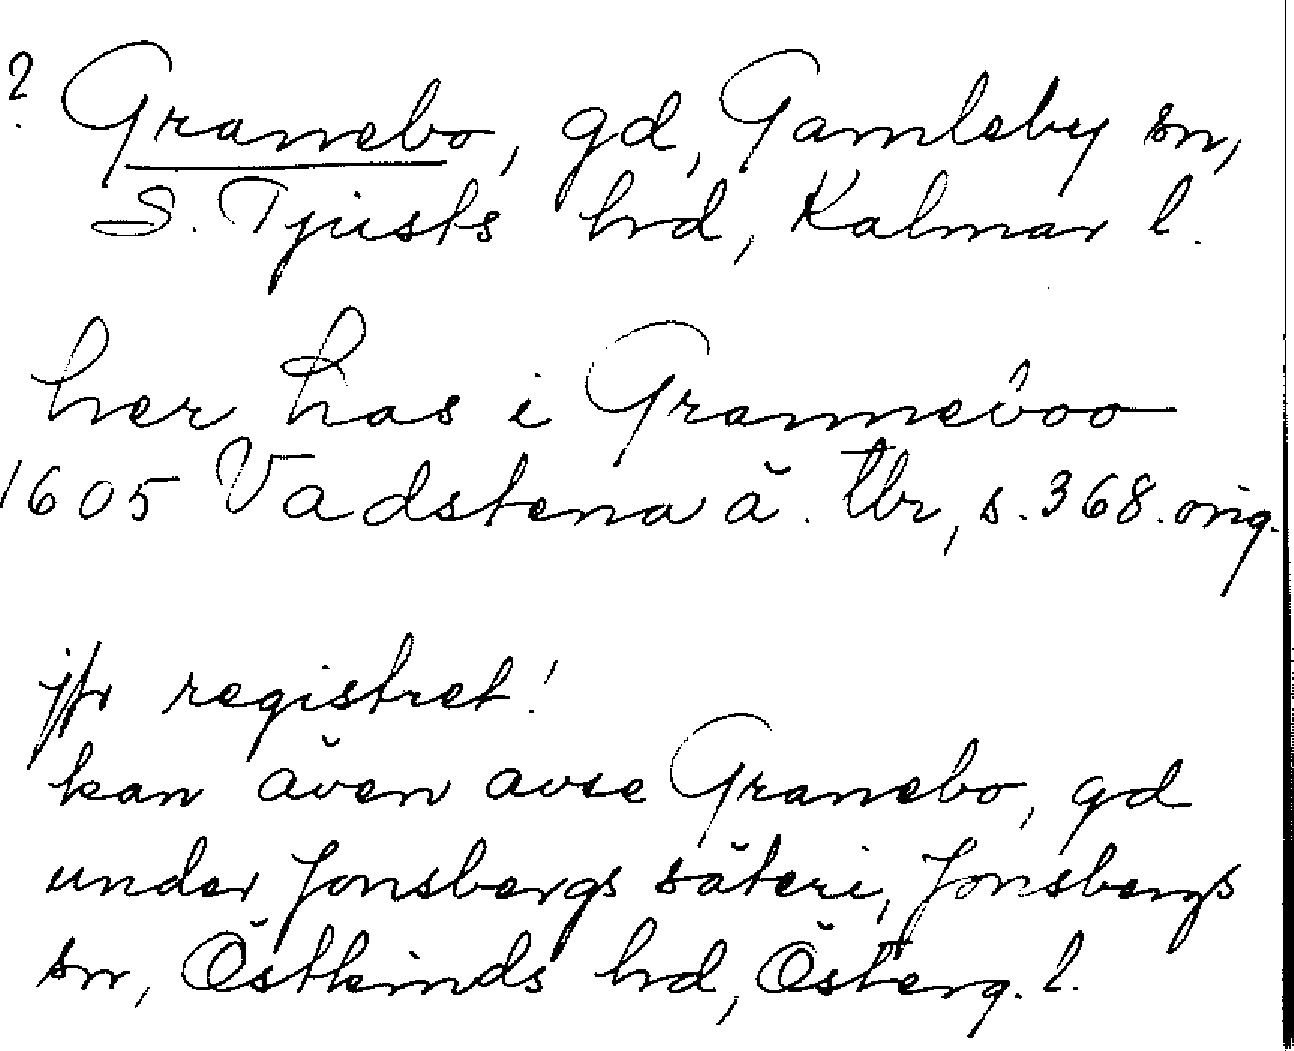 ? Granebo, gd, Gamleby sn,
S. Tjusts hrd, Kalmar l.
her has i Granneboo
1605 Vadstena ä. tbr, s. 368. orig.
jfr registret!
kan även avse Granebo, gd
under Jonsbergs säteri, Jonsbergs
sn, Östkinds hrd, Österg. l.